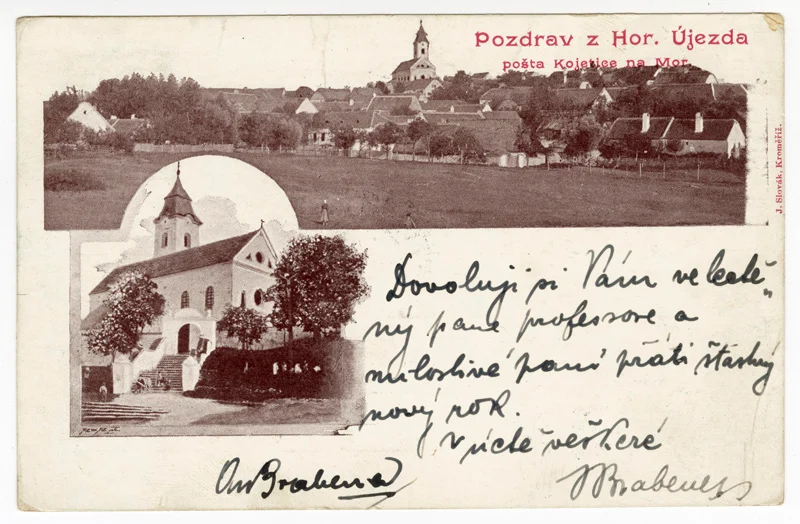 Pozdrav z Hor. Újezda
pošta Kojetice na Mor.
J. Slovák, Kroměříž.
Dovoluji si Vám velectě-
ný pane professore a
milostivé paní přáti šťastný
nový rok.
V úctě veškeré
Brabenec